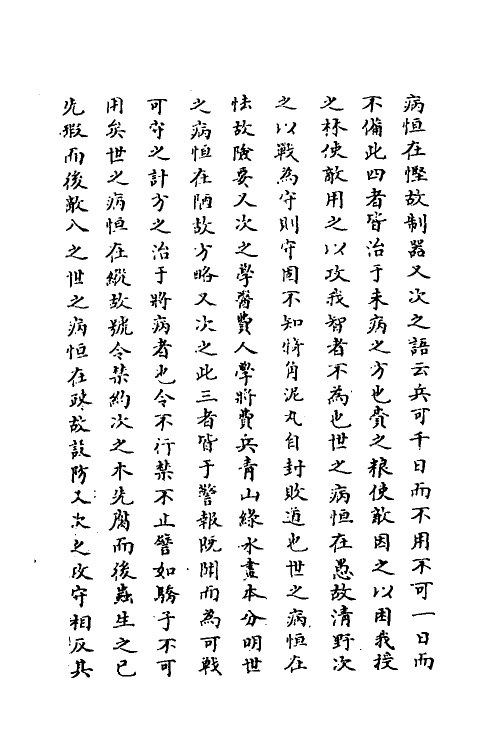 病恒在慳故制器又次之語云兵可千日而不用不可一日而
不備此四者皆治于未病之方也賫之粮使敵因之以困我授
之秝使敵用之以攻我智者不為也世之病恒在愚故清野次
之以戰為守則守固不知將角泥丸自封敗道也世之病恒在
怯故險要又次之學醫費人學將費兵青山綠水畫本分明世
之病恒在陋故方略又次之此三者皆于警報既聞而為可戰
可守之計方之治于將病者也令不行禁不止譬如驕子不可
用矣世之病恒在縱故號令禁約次之木先腐而後蟲生之已
先瑕而後敵入之世之病恒在疎故設防又次之攻守相反其